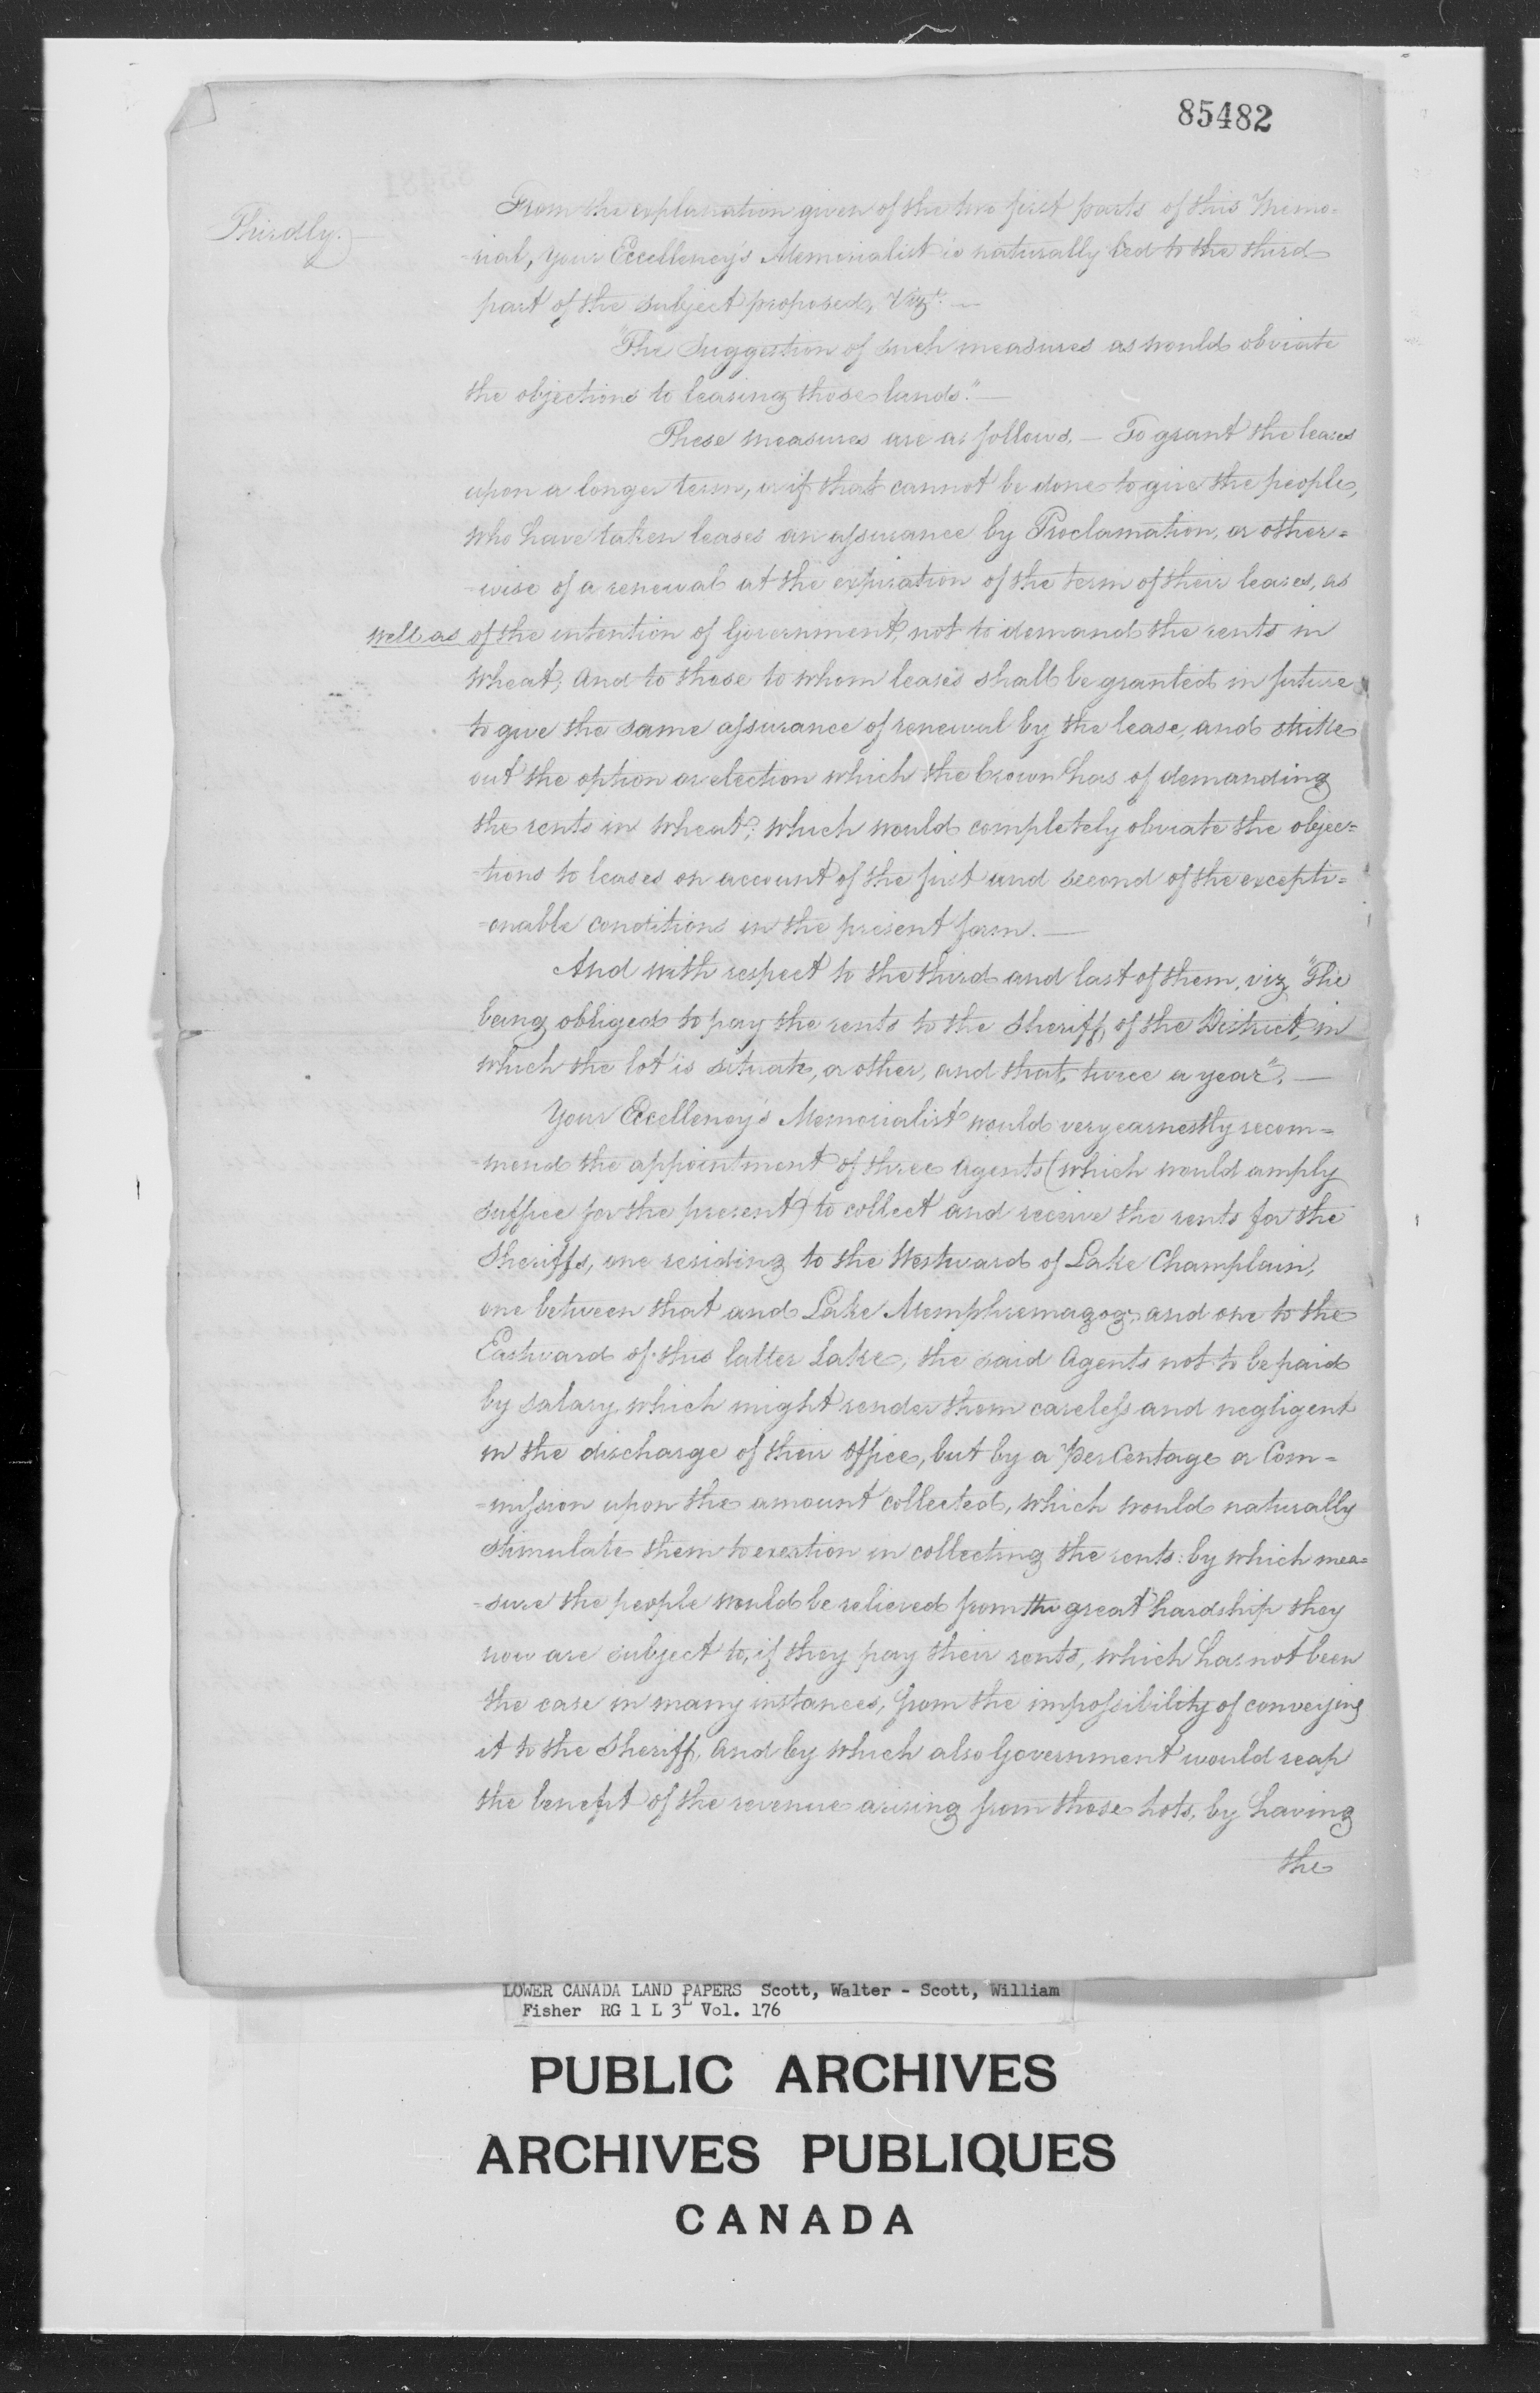 85482
Thirdly.
From the explanation given of the two first parts of this Memo-
-rial, Your Excellency's Memorialist is naturally led to the third
part of the subject proposed, Vizt. —
"The Suggestion of such measures as would obviate
the objections to leasing those lands." —
These measures are as follows. — To grant the leases
upon a longer term, or if that cannot be done to give the people,
who have taken leases an assurance by Proclamation, or other=
-wise of a renewal at the expiration of the term of their leases, as
well as of the intention of Government, not to demand the rents in
wheat; And to those to whom leases shall be granted in future
to give the same assurance of renewal by the lease, and strike
out the option or election which the Crown has of demanding
the rents in wheat; which would completely obviate the objec=
-tions to leases on account of the first and second of the excepti=
-onable conditions in the present form. —
And with respect to the third and last of them, viz, "The
being obliged to pay the rents to the Sheriff, of the District, in
which the lot is situate, or other, and that, twice a year". —
Your Excellency's Memorialist would very earnestly recom=
-mend the appointment of three Agents (which would amply
suffice for the present) to collect and receive the rents for the
Sheriffs, one residing to the Westward of Lake Champlain,
one between that and Lake Memphremagog, and one to the
Eastward of this latter Lake, the said Agents not to be paid
by salary, which might render them careless and negligent
in the discharge of their Office, but by a Per Centage or Com=
=mission upon the amount collected, which would naturally
stimulate them to exertion in collecting the rents: by which mea=
=sure the people would be relieved from the great hardship they
now are subject to, if they pay their rents, which has not been
the case in many instances, from the impossibility of conveying
it to the Sheriff, And by which also Government would reap
the benefit of the revenue arising from those lots, by having
the
LOWER CANADA LAND PAPERS Scott, Walter - Scott, William
Fisher RG 1 L 3L Vol. 176
PUBLIC ARCHIVES
ARCHIVES PUBLIQUES
CANADA